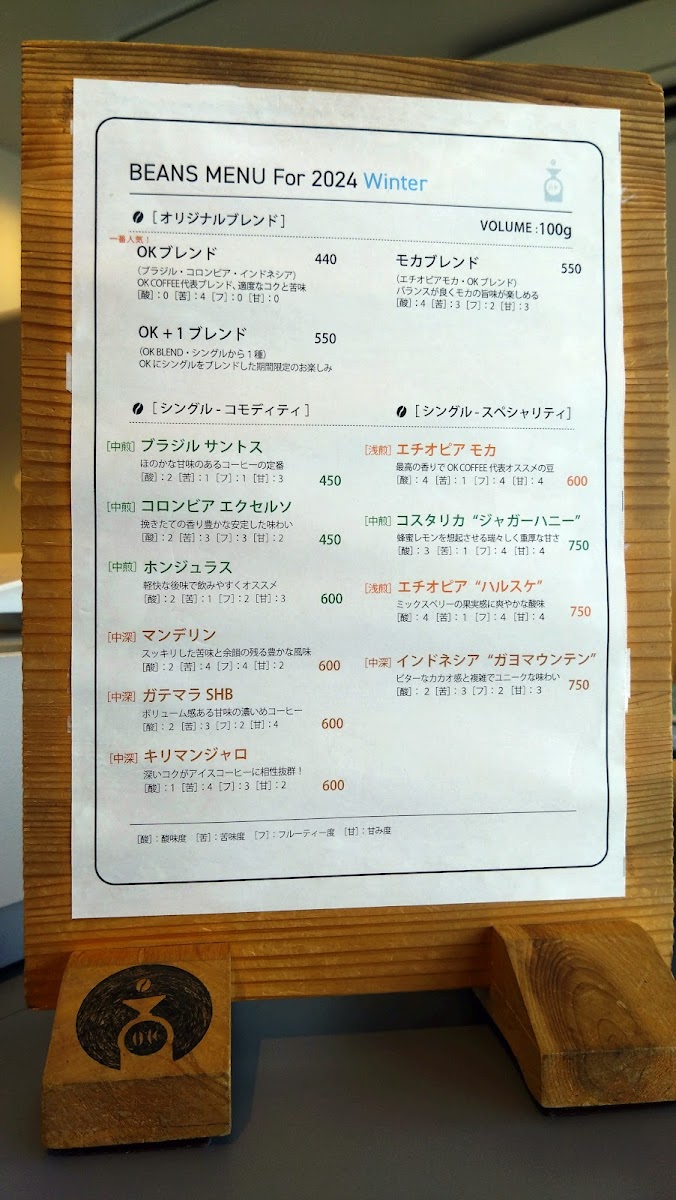 BEANS MENU For 2024 Winter
[オリジナルブレンド]
VOLUME : 100g
一番人気!
OKブレンド 440
(ブラジル・コロンビア・インドネシア)
OK COFFEE代表ブレンド、適度なコクと苦味
[酸]:0 [苦]:4 [フ]:0 [甘]:0
モカブレンド 550
(エチオピアモカ・OKブレンド)
バランスが良くモカの旨味が楽しめる
[酸]:4 [苦]:3 [フ]:2 [甘]:3
OK+1ブレンド 550
(OK BLEND・シングルから1種)
OKにシングルをブレンドした期間限定のお楽しみ
[シングル-コモディティ]
[中煎] ブラジル サントス
ほのかな甘味のあるコーヒーの定番
[酸]:2 [苦]:1 [フ]:1 [甘]:3 450
[中煎] コロンビア エクセルソ
挽きたての香り豊かな安定した味わい
[酸]:2 [苦]:3 [フ]:3 [甘]:2 450
[中煎] ホンジュラス
軽快な後味で飲みやすくオススメ
[酸]:2 [苦]:1 [フ]:2 [甘]:3 600
[中深] マンデリン
スッキリした苦味と余韻の残る豊かな風味
[酸]:2 [苦]:4 [フ]:4 [甘]:2 600
[中深] ガテマラ SHB
ボリューム感ある甘味の濃いめコーヒー
[酸]:2 [苦]:3 [フ]:2 [甘]:4 600
[中深] キリマンジャロ
深いコクがアイスコーヒーに相性抜群!
[酸]:1 [苦]:4 [フ]:3 [甘]:2 600
[シングル-スペシャリティ]
[浅煎] エチオピア モカ
最高の香りで OK COFFEE 代表オススメの豆
[酸]:4 [苦]:1 [フ]:4 [甘]:4 600
[中煎] コスタリカ “ジャガーハニー”
蜂蜜レモンを想起させる瑞々しく重厚な甘さ
[酸]:3 [苦]:1 [フ]:4 [甘]:4 750
[浅煎] エチオピア “ハルスケ”
ミックスベリーの果実感に爽やかな酸味
[酸]:4 [苦]:1 [フ]:4 [甘]:4 750
[中深] インドネシア “ガヨマウンテン”
ビターなカカオ感と複雑でユニークな味わい
[酸]:2 [苦]:3 [フ]:2 [甘]:3 750
[酸]:酸味度 [苦]:苦味度 [フ]:フルーティー度 [甘]:甘み度
OK